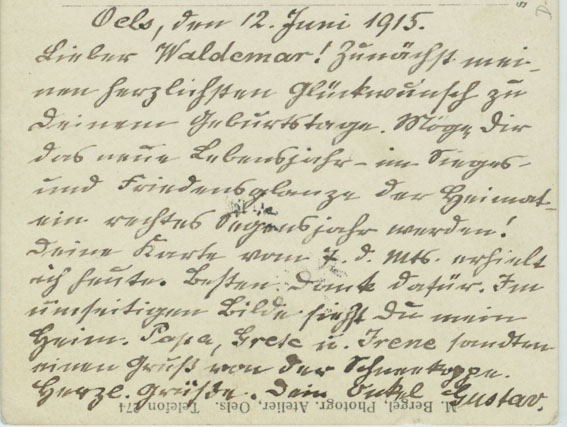 Oels, den 12. Juni 1915.
Lieber Waldemar! Zunächst mei-
nen herzlichsten Glückwunsch zu
Deinem Geburtstage. Möge Dir
das neue Lebensjahr - im Sieges-
und Friedensglanze der Heimat -
ein rechtes Segensjahr werden!
Deine Karte vom 7. d. Mts. erhielt
ich heute. Besten Dank dafür. Im
umseitigen Bilde siehst Du mein
Heim. Papa, Grete u. Irene sandten
einen Gruß von der Schneekoppe.
Herzl. Grüße. Dein Onkel Gustav.
M. Bergel, Photogr. Atelier, Oels. Telefon 274